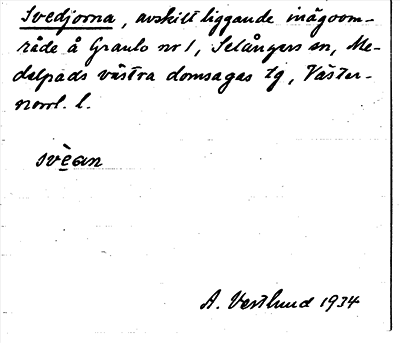 Svedjorna, avskilt liggande inägoom-
råde å Graulo nr 1, Selångers sn, Me-
delpads västra domsagas tg, Väster-
norrl. l.
svèan
A. Vestlund 1934